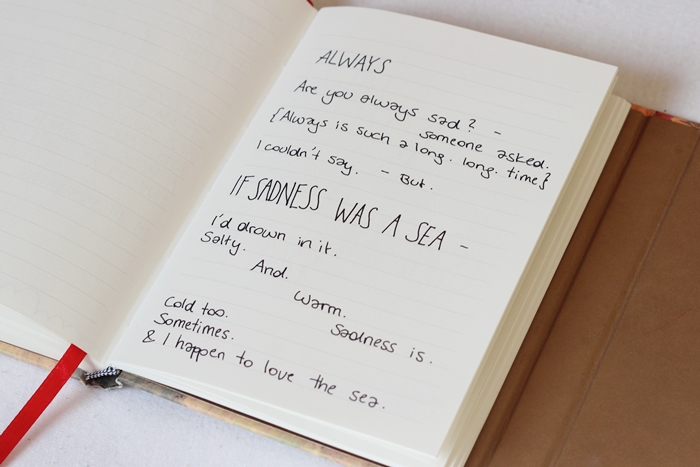 ALWAYS
Are you always sad? -
someone asked.
{Always is such a long. long. time}
I couldn't say. - But.
IF SADNESS WAS A SEA -
I'd drown in it.
Salty.
And.
Warm.
Sadness is.
Cold too.
Sometimes.
& I happen to love the sea.